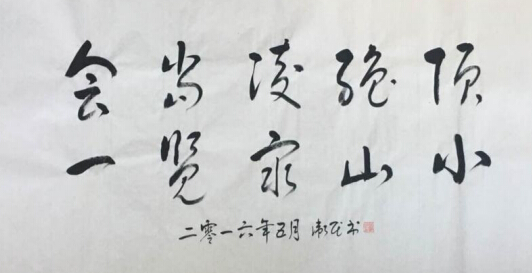 会当凌绝顶
一览众山小
二零一六年五月 书